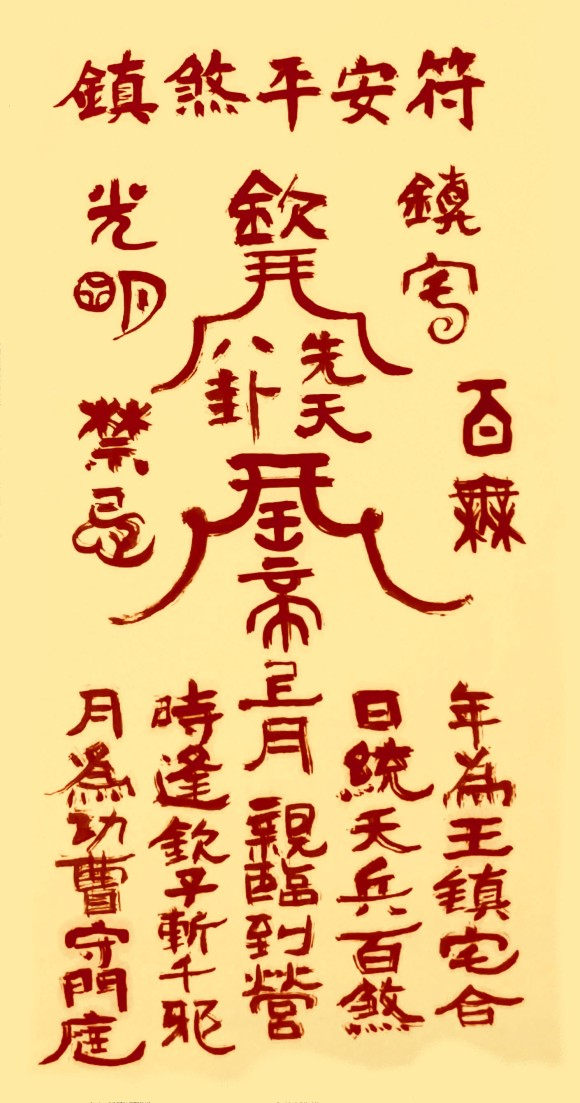 鎮煞平安符
鎮宅
光明
欽
先天
八卦
百無
禁忌
帝
年為王鎮宅合
日統天兵百煞
月親臨到營
時逢欽子斬千邪
月為功曹守門庭